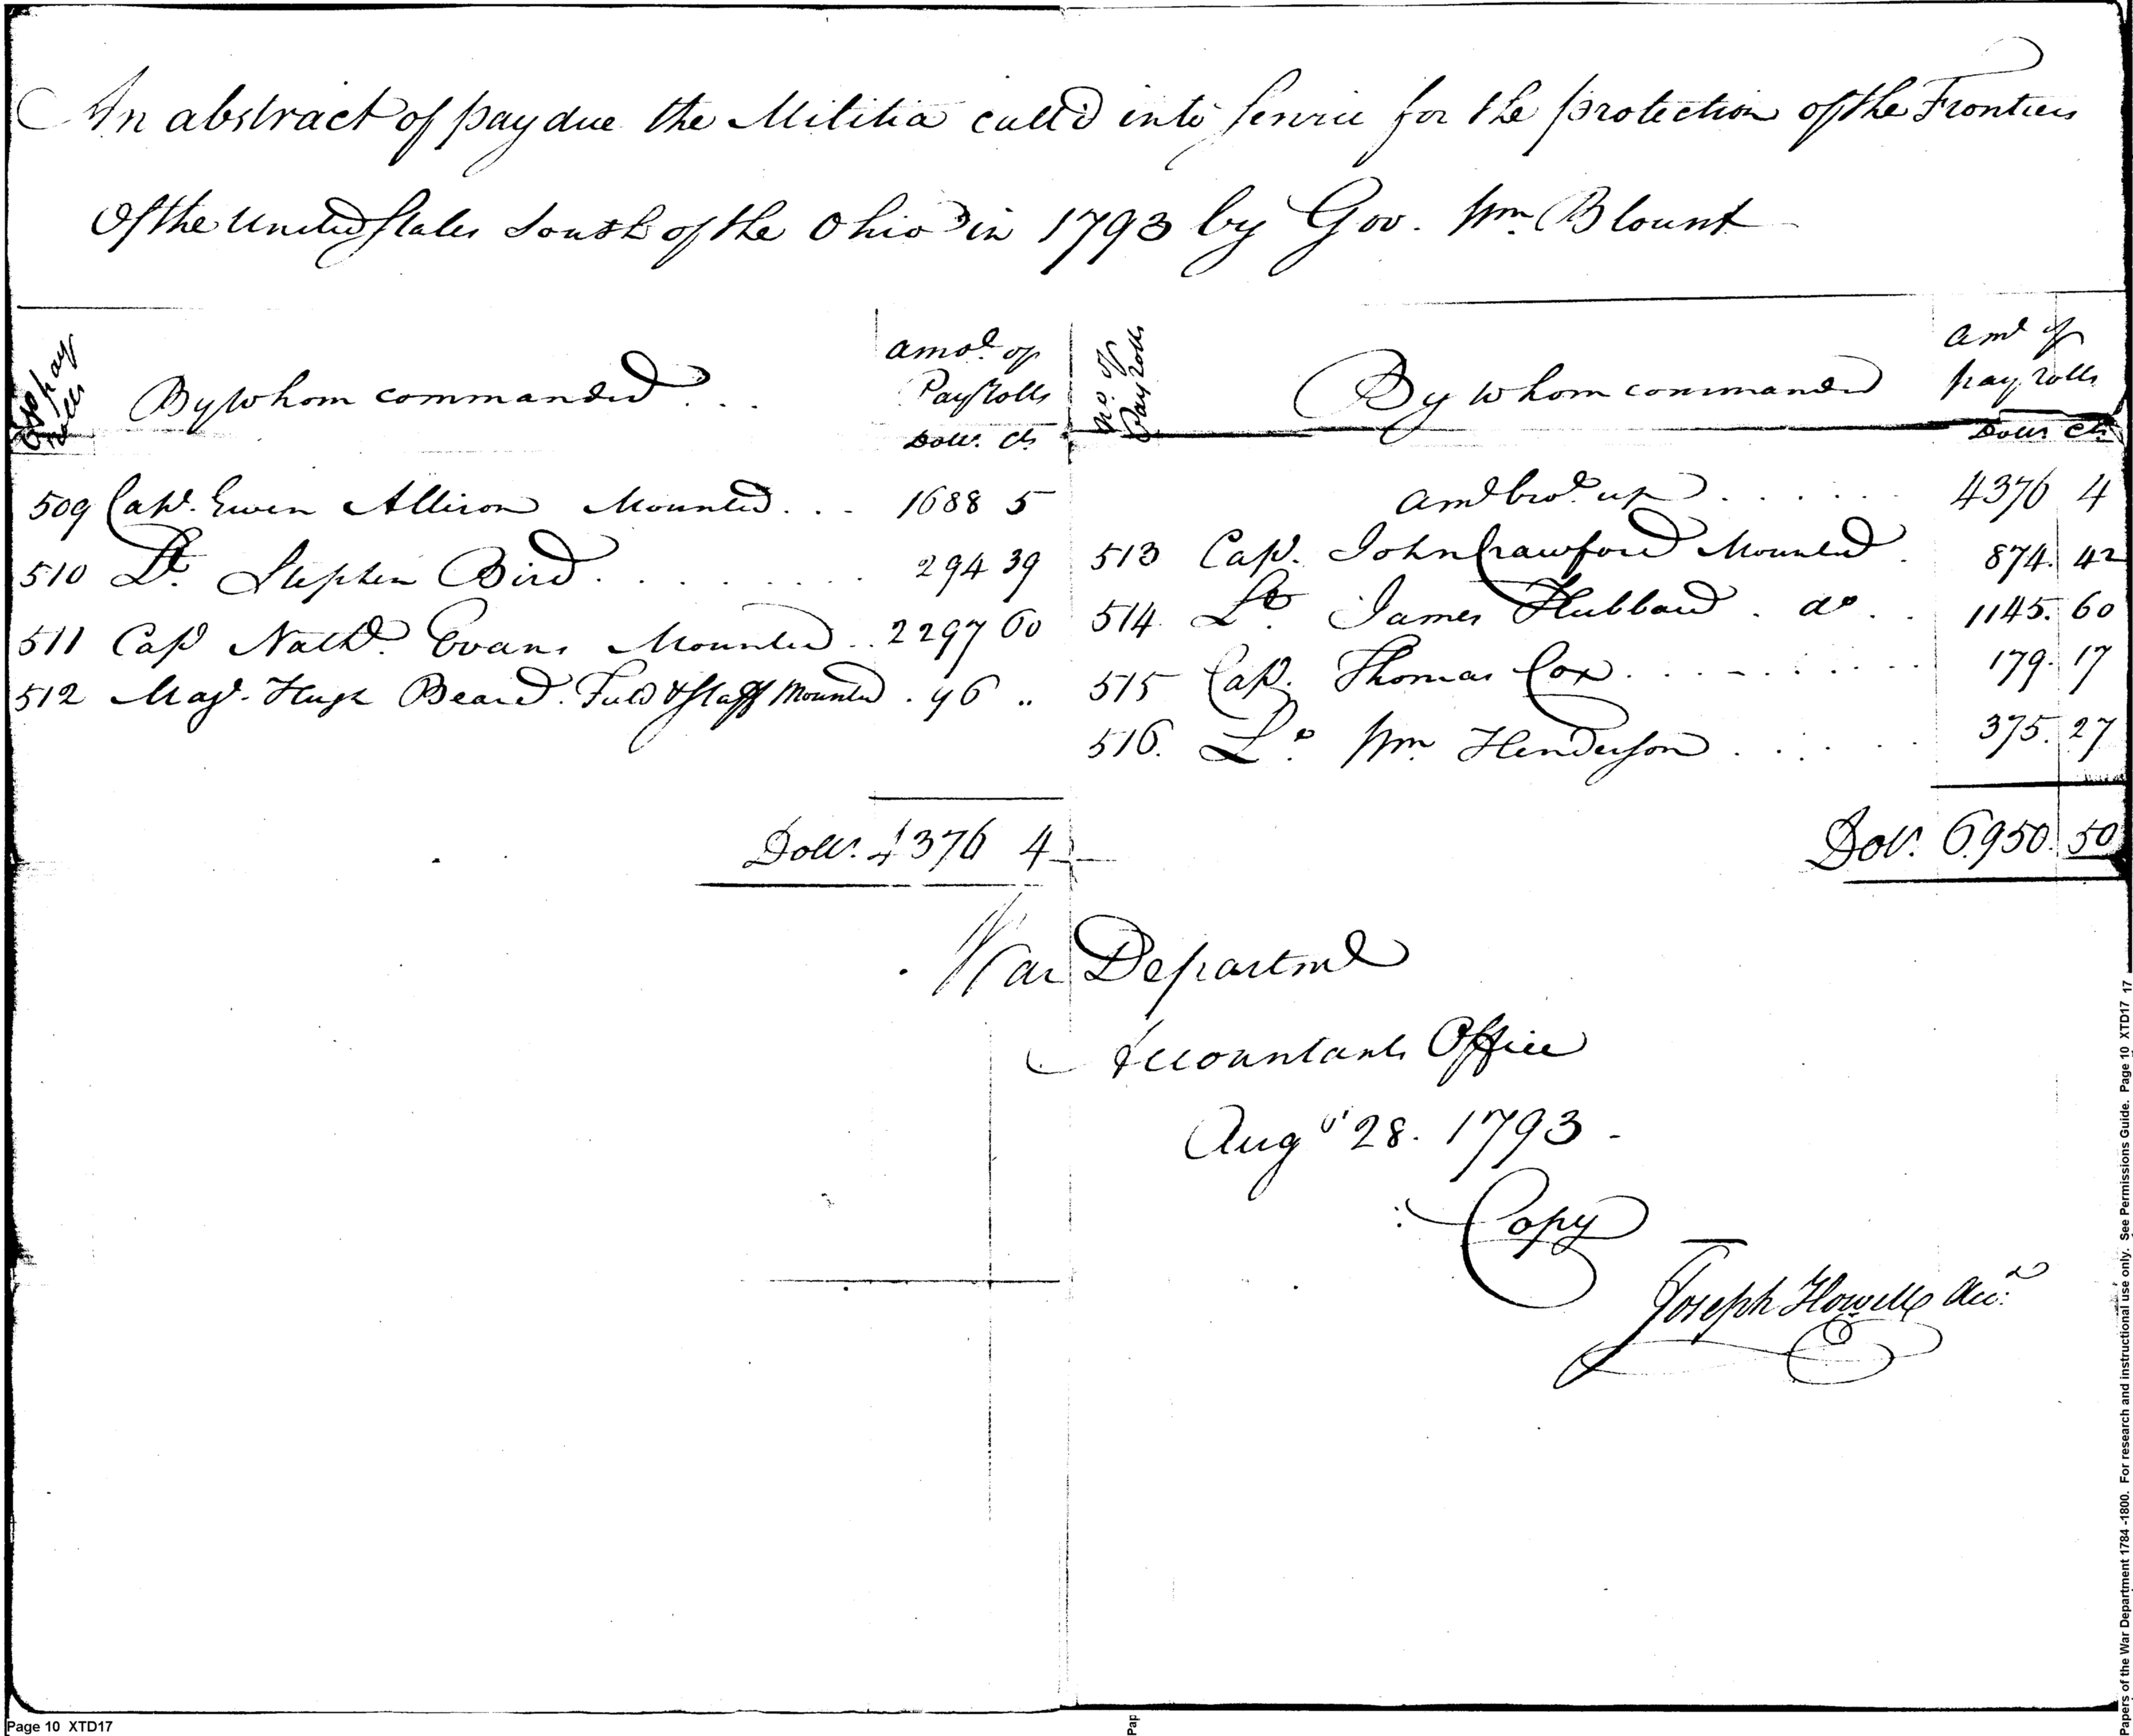 An abstract of pay due the Militia call'd into service for the protection of the Frontiers
Of the United States South of the Ohio in 1793 by Gov. Wm. Blount
No. of pay rolls
By whom commanded . . .
amot. of Pay Rolls
Dolls. Cts
509 Capt. Ewen Allison Mounted . . . 1688 5
510 Lt. Stephen Bird . . . . . . . . 294 39
511 Capt Nathl. Evans Mounted . . 2297 60
512 Majr. Hugh Beard. Field & Staff Mounted . 96 ..
Dolls. 4376 4
No. of Pay rolls
By whom commanded
amt of pay rolls
Dolls Cts
amt brot. up . . . . . . 4376 4
513 Capt. John Crawford Mounted . 874. 42
514 Lt. James Hubbard . do . . 1145. 60
515 Capt. Thomas Cox . . . . . . . . 179. 17
516. Lt. Wm. Henderson . . . . . 375. 27
Dolls. 6950. 50
War Departmt
Accountants Office
Augt 28. 1793 -
Copy
Joseph Howell Acct.
Page 10 XTD17
Pap
Papers of the War Department 1784 -1800. For research and instructional use only. See Permissions Guide. Page 10 XTD17 17